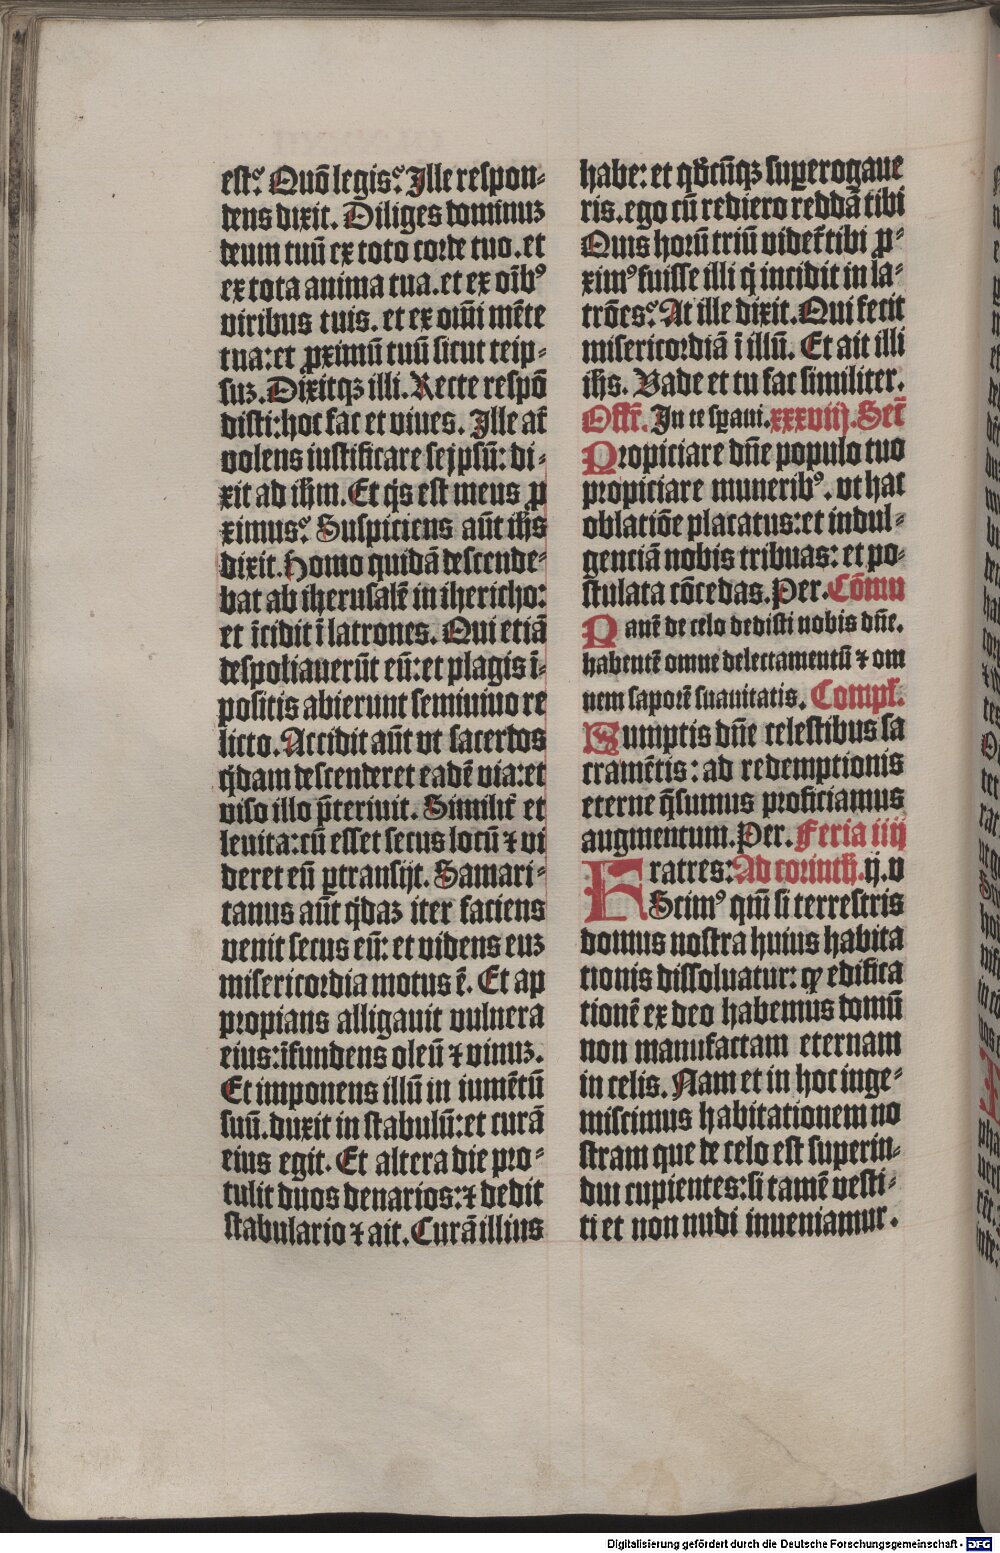 est? Quō legis? Ille respon-
dens dixit. Diliges dominuz
deum tuū ex toto corde tuo. et
ex tota anima tua. et ex oībꝰ
viribus tuis. et ex om̄i mēte
tua: et ꝓximū tuū sicut teip-
suz. Dixitqꝫ illi. Recte respō
disti: hoc fac et viues. Ille at̄
volens iustificare seipsū: di-
xit ad ih̄m. Et q̇s est meus ꝓ
ximus? Suspiciens aūt ih̄s
dixit. Homo quidā descende-
bat ab iherusalē in ihericho:
et īcidit ī latrones. Qui etiā
despoliauerūt eū: et plagis ī-
positis abierunt seminiuo re
licto. Accidit aūt vt sacerdos
q̇dam descenderet eadē via: et
viso illo p̄teriuit. Similit̄ et
leuita: cū esset secus locū ⁊ vi
deret eū ꝑtransijt. Samari-
tanus aūt q̇daz iter faciens
venit secus eū: et videns euz
misericordia motus ē. Et ap
propians alligauit vulnera
eius: īfundens oleū ⁊ vinuz.
Et imponens illū in iumētū
suū. duxit in stabulū: et curā
eius egit. Et altera die pro-
tulit duos denarios: ⁊ dedit
stabulario ⁊ ait. Curā illius
habe: et qd̄cūqꝫ suꝑerogaue
ris. ego cū rediero reddā tibi
Quis horū triū videt̄ tibi ꝓ-
ximꝰ fuisse illi q̇ incidit in la-
trōes? At ille dixit. Qui fecit
misericordiā ī illū. Et ait illi
ih̄s. Vade et tu fac similiter.
Offr̄. In te sꝑaui. xxxviij. Secr̄
Propiciare dn̄e populo tuo
propiciare muneribꝰ. vt hac
oblatiōe placatus: et indul-
genciā nobis tribuas: et po-
stulata cōcedas. Per. Cōmu
Panē de celo dedisti nobis dn̄e.
habentē omne delectamentū ⁊ om
nem saporē suauitatis. Compl̄.
Sumptis dn̄e celestibus sa
cramētis: ad redemptionis
eterne q̄sumus proficiamus
augmentum. Per. Feria iiij
Fratres: Ad corinth̄. ij. v
Scimꝰ qm̄ si terrestris
domus nostra huius habita
tionis dissoluatur: ꝙ edifica
tionē ex deo habemus domū
non manufactam eternam
in celis. Nam et in hoc inge-
miscimus habitationem no
stram que de celo est superin-
dui cupientes: si tamē vesti-
ti et non nudi inueniamur.
Digitalisierung gefördert durch die Deutsche Forschungsgemeinschaft - DFG